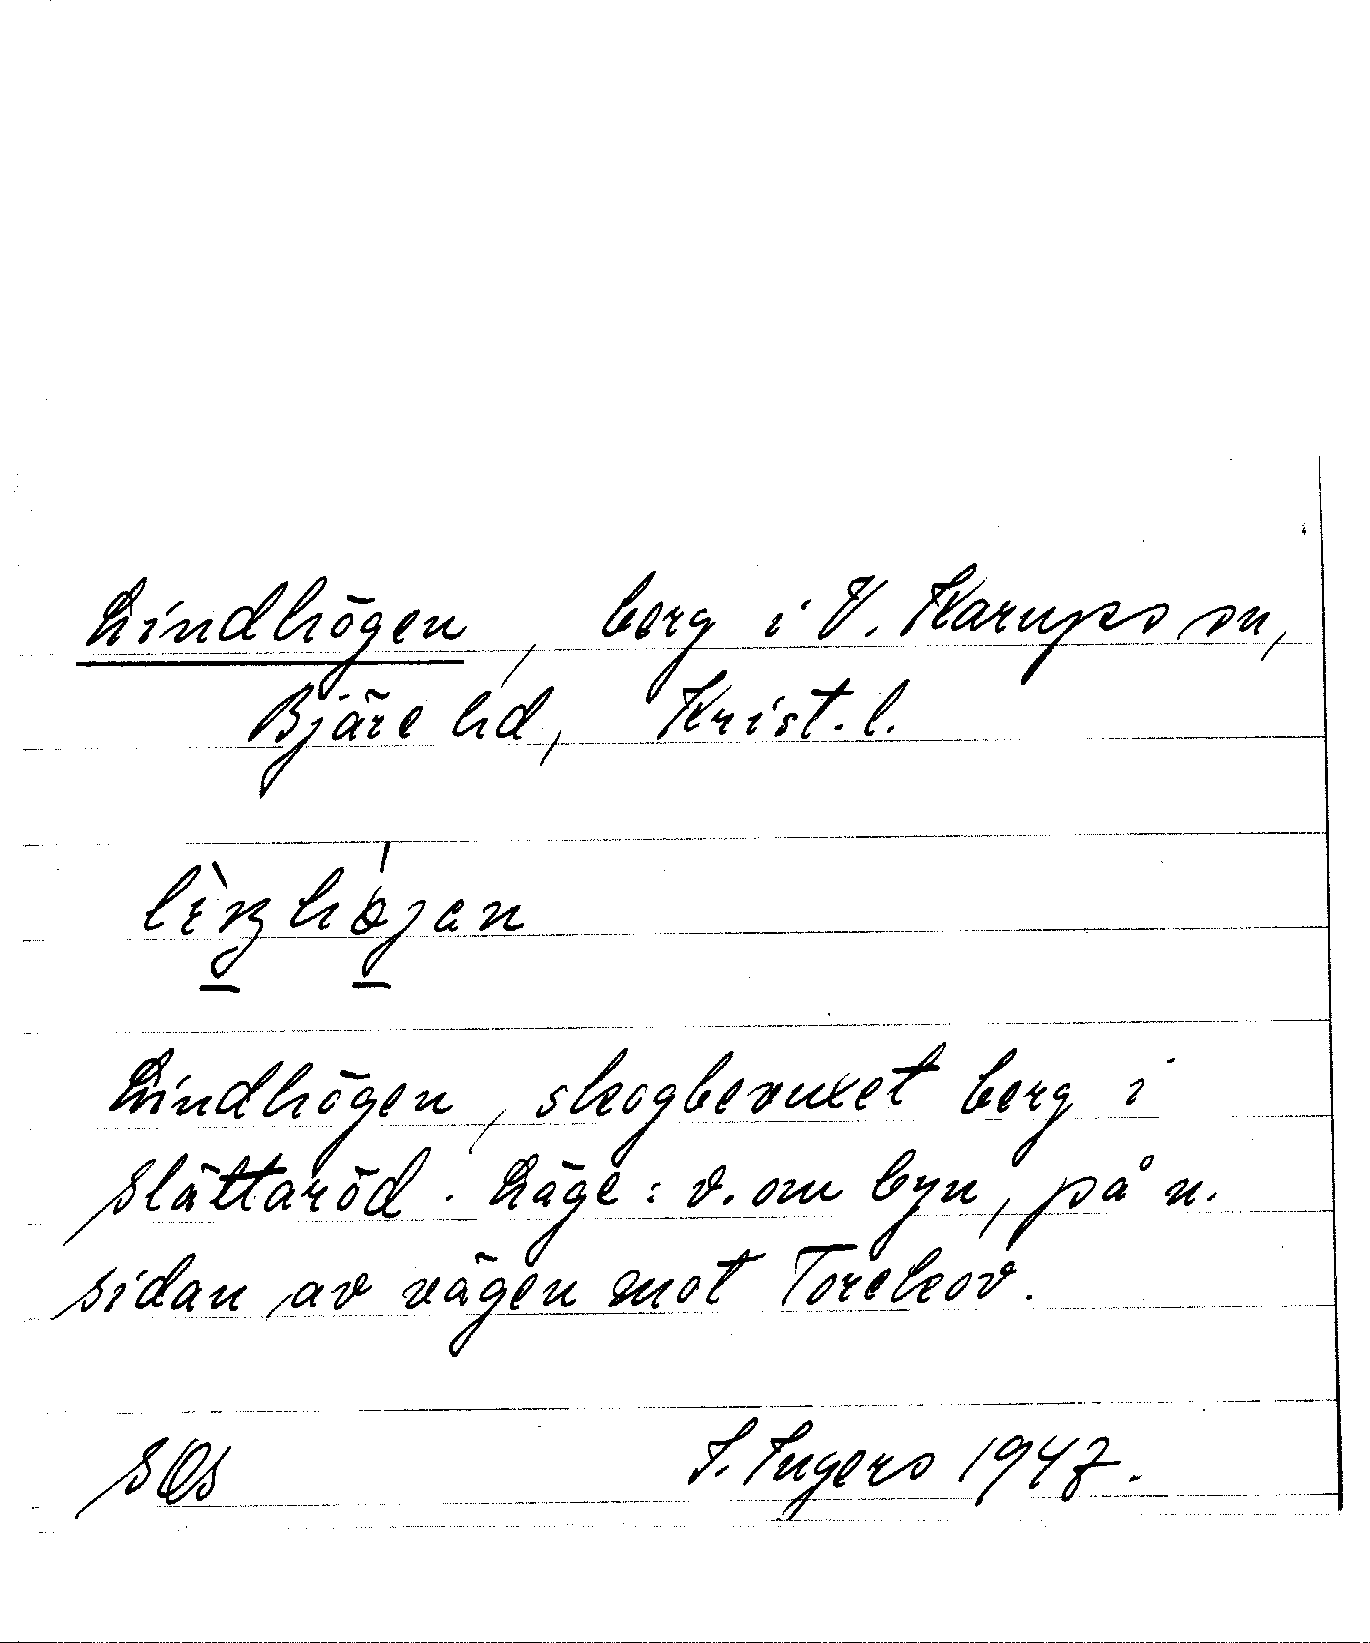 Lindhögen, berg i V. Karups sn,
Bjäre hd, Krist. l.
Lindhögen, skogbevuxet berg i
Slättaröd. Läge: v. om byn, på n.
sidan av vägen mot Torekov.
SOs I. Ingers 1947.